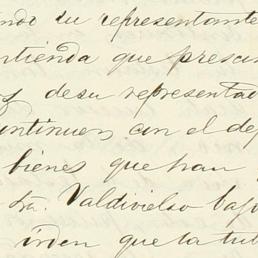 ndo su representante
ntienda que prescin
os de su representad
continuen con el dep
bienes que han
Sra. Valdivielso bajo
orden que la tut